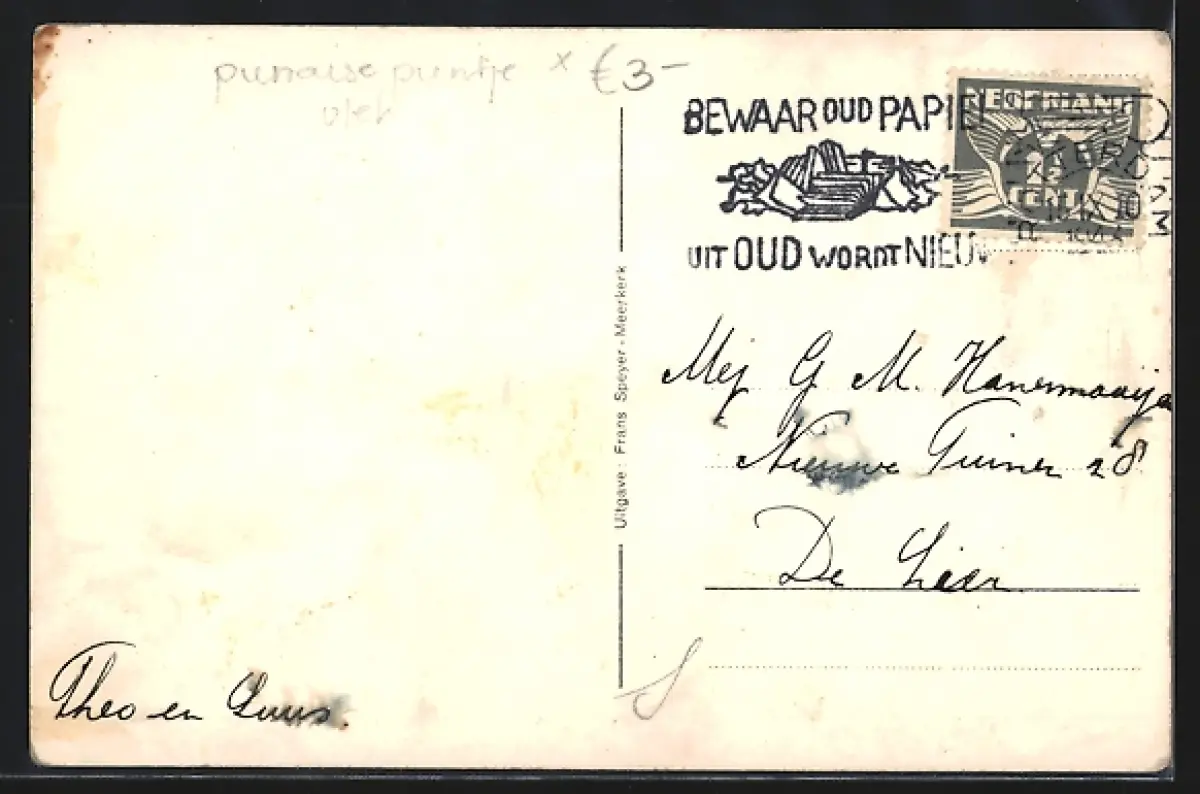 punaise puntje x €3-
vlek
BEWAAR OUD PAPIER
UIT OUD WORDT NIEUW
NEDERLAND
CENT
Uitgave: Frans Speyer - Meerkerk
Mej G M. Hanemaaijer
Nieuwe Tuinen 28
De Lier
Theo en Guus.